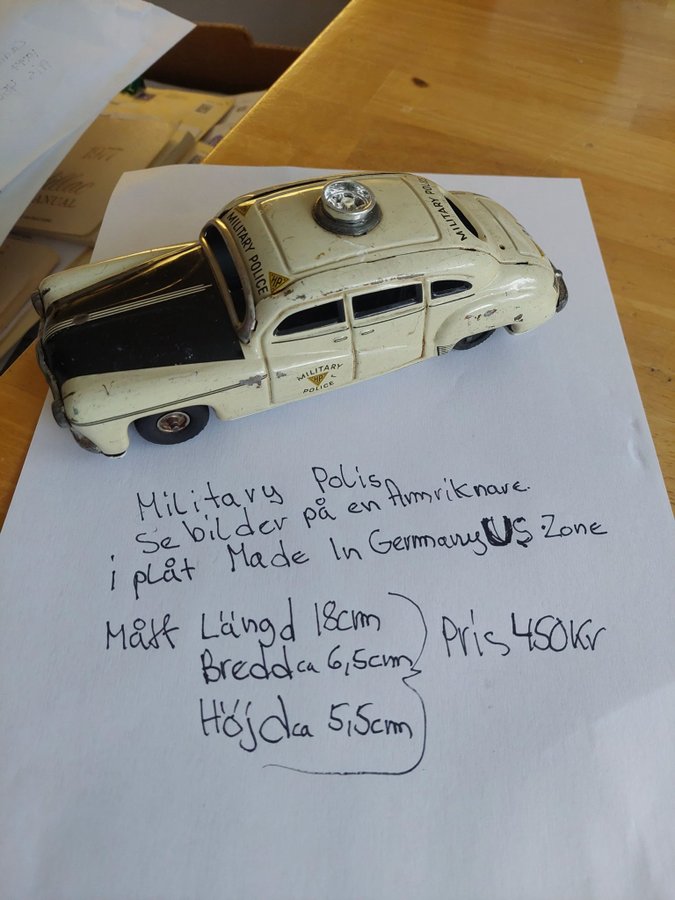 1977
MANUAL
MILITARY POLICE
MP
MILITARY POLICE
MILITARY
MP
POLICE
Military Polis
Se bilder på en Amriknare.
i plåt Made In Germany US-Zone
Mått Längd 18cm
Bredd ca 6,5cm
Höjd ca 5,5cm
Pris 450Kr